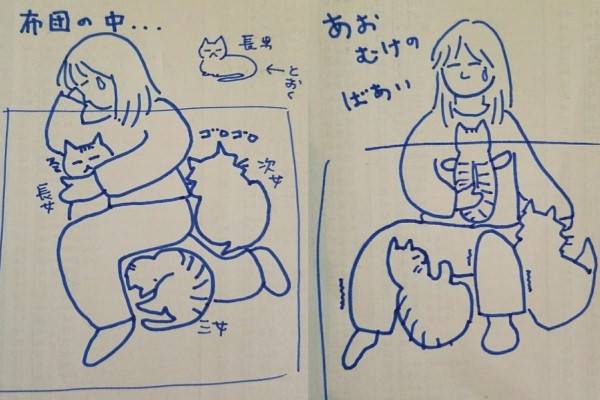 布団の中...
長男
←とおく
ゴロゴロ
長女
次女
三女
あお
むけの
ばあい